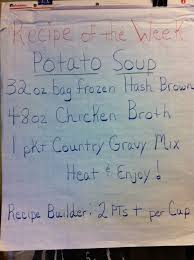 Recipe of the Week
Potato Soup
32oz bag frozen Hash Brown
48oz Chicken Broth
1 pkt Country Gravy Mix
Heat & Enjoy!
Recipe Builder: 2 Pts + per Cup